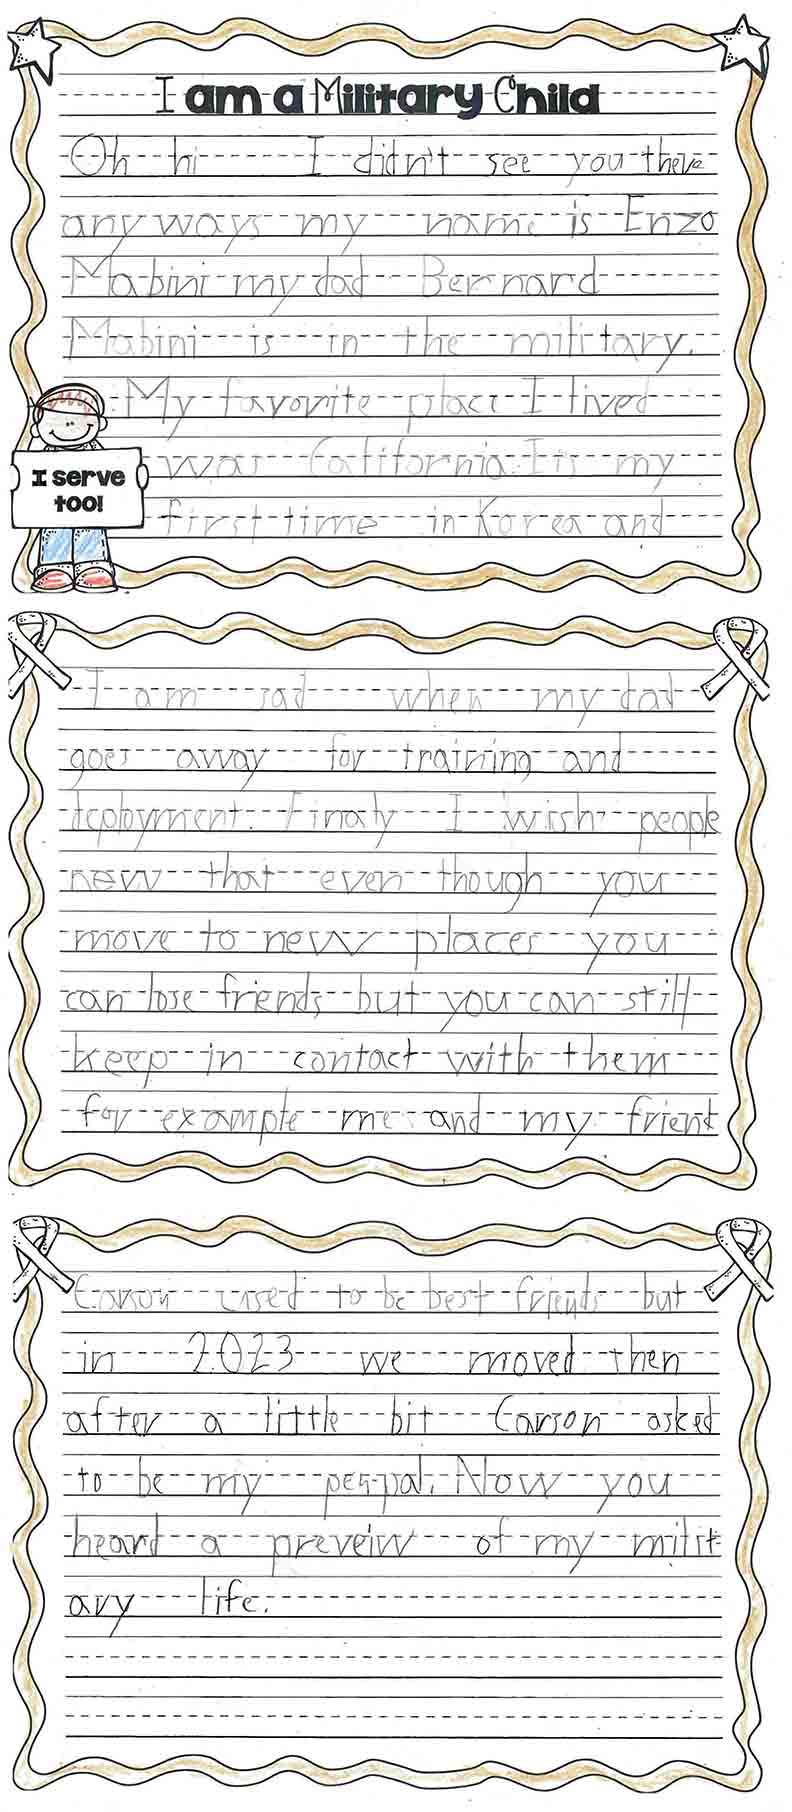 I am a Military Child
Oh hi I didn't see you there
any ways my name is Enzo
Mabini my dad Bernard
Mabini is in the military.
My favorite place I lived
was California. It is my
first time in Korea and
I serve
too!
I am sad when my dad
goes away for training and
deployment. Finaly I wish people
new that even though you
move to new places you
can lose friends but you can still
keep in contact with them
for example me and my friend
Carson used to be best friends but
in 2023 we moved then
after a little bit Carson asked
to be my pen-pal. Now you
heard a preveiw of my milit
ary life.